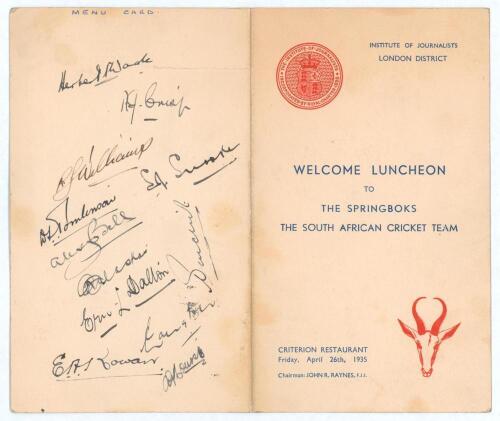 MENU CARD
Herbert Wade
R.J. Crisp
R.J. Williams
E.L.
D. Tomlinson
Alex Bell
Eric L Dalton
E.A.B Rowan
THE INSTITUTE OF JOURNALISTS
INSTITUTE OF JOURNALISTS
LONDON DISTRICT
WELCOME LUNCHEON
TO
THE SPRINGBOKS
THE SOUTH AFRICAN CRICKET TEAM
CRITERION RESTAURANT
Friday, April 26th, 1935
Chairman: JOHN R. RAYNES, F.J.I.